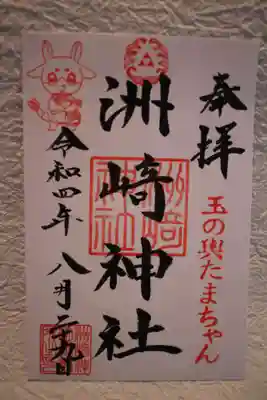 奉拝
玉の輿たまちゃん
洲崎神社
令和四年八月二九日